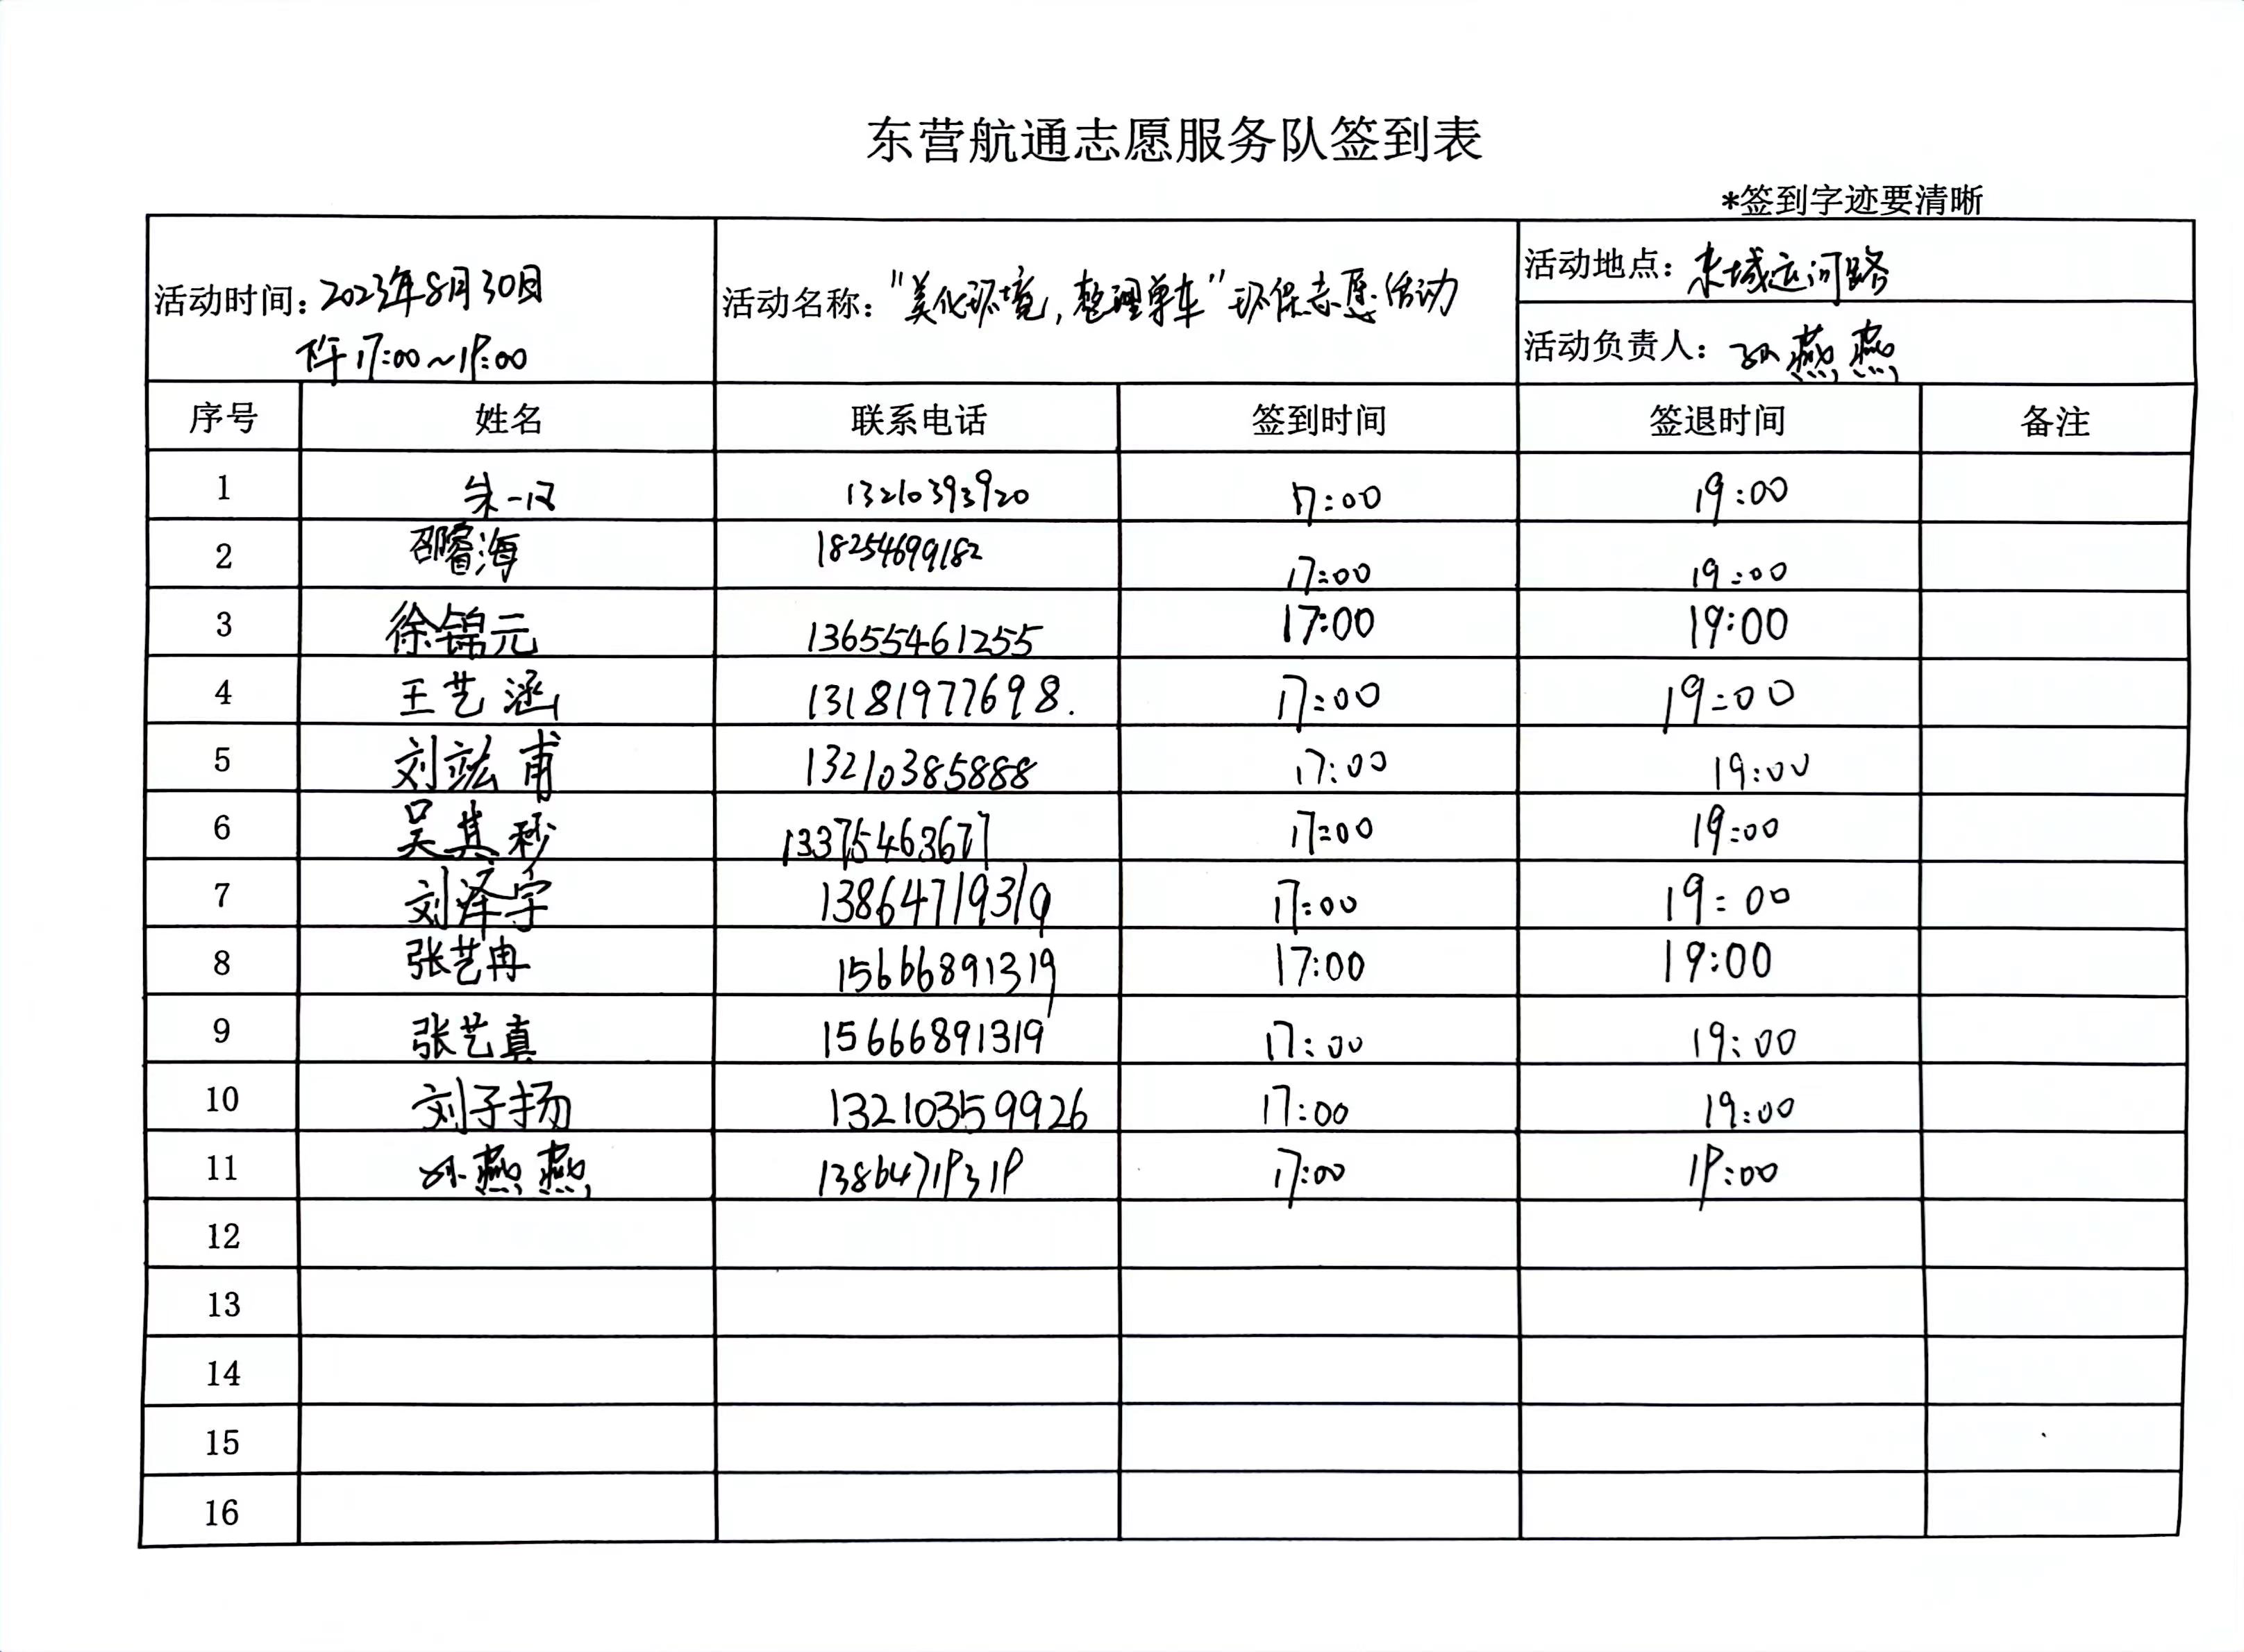 东营航通志愿服务队签到表
*签到字迹要清晰
活动时间：2023年8月30日
下午17:00～19:00
活动名称："美化环境，整理单车"环保志愿活动
活动地点：东城运河路
活动负责人：孙燕燕
序号 姓名 联系电话 签到时间 签退时间 备注
1 朱一 13210393920 17:00 19:00
2 邵睿海 18254699182 17:00 19:00
3 徐锦元 13655461255 17:00 19:00
4 王艺涵 13181977698. 17:00 19:00
5 刘竑甫 13210385888 17:00 19:00
6 吴其秒 13375463677 17:00 19:00
7 刘泽宇 13864719319 17:00 19:00
8 张艺冉 15666891319 17:00 19:00
9 张艺真 15666891319 17:00 19:00
10 刘子扬 13210359926 17:00 19:00
11 孙燕燕 13864719319 17:00 19:00
12
13
14
15
16